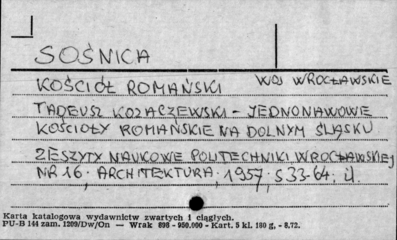 SOŚNICA
KOŚCIÓŁ ROMAŃSKI WOJ WROCŁAWSKIE
TADEUSZ KOZACZEWSKI - JEDNONAWOWE
KOŚCIOŁY ROMAŃSKIE NA DOLNYM ŚLĄSKU
ZESZYTY NAUKOWE POLITECHNIKI WROCŁAWSKIEJ
NR 16. ARCHITEKTURA, 1957, S 33-64, il.
Karta katalogowa wydawnictw zwartych i ciągłych.
PU-B 144 zam. 1209/Dw/On — Wrak 698 - 950.000 - Kart. 5 kl. 180 g. - 8.72.